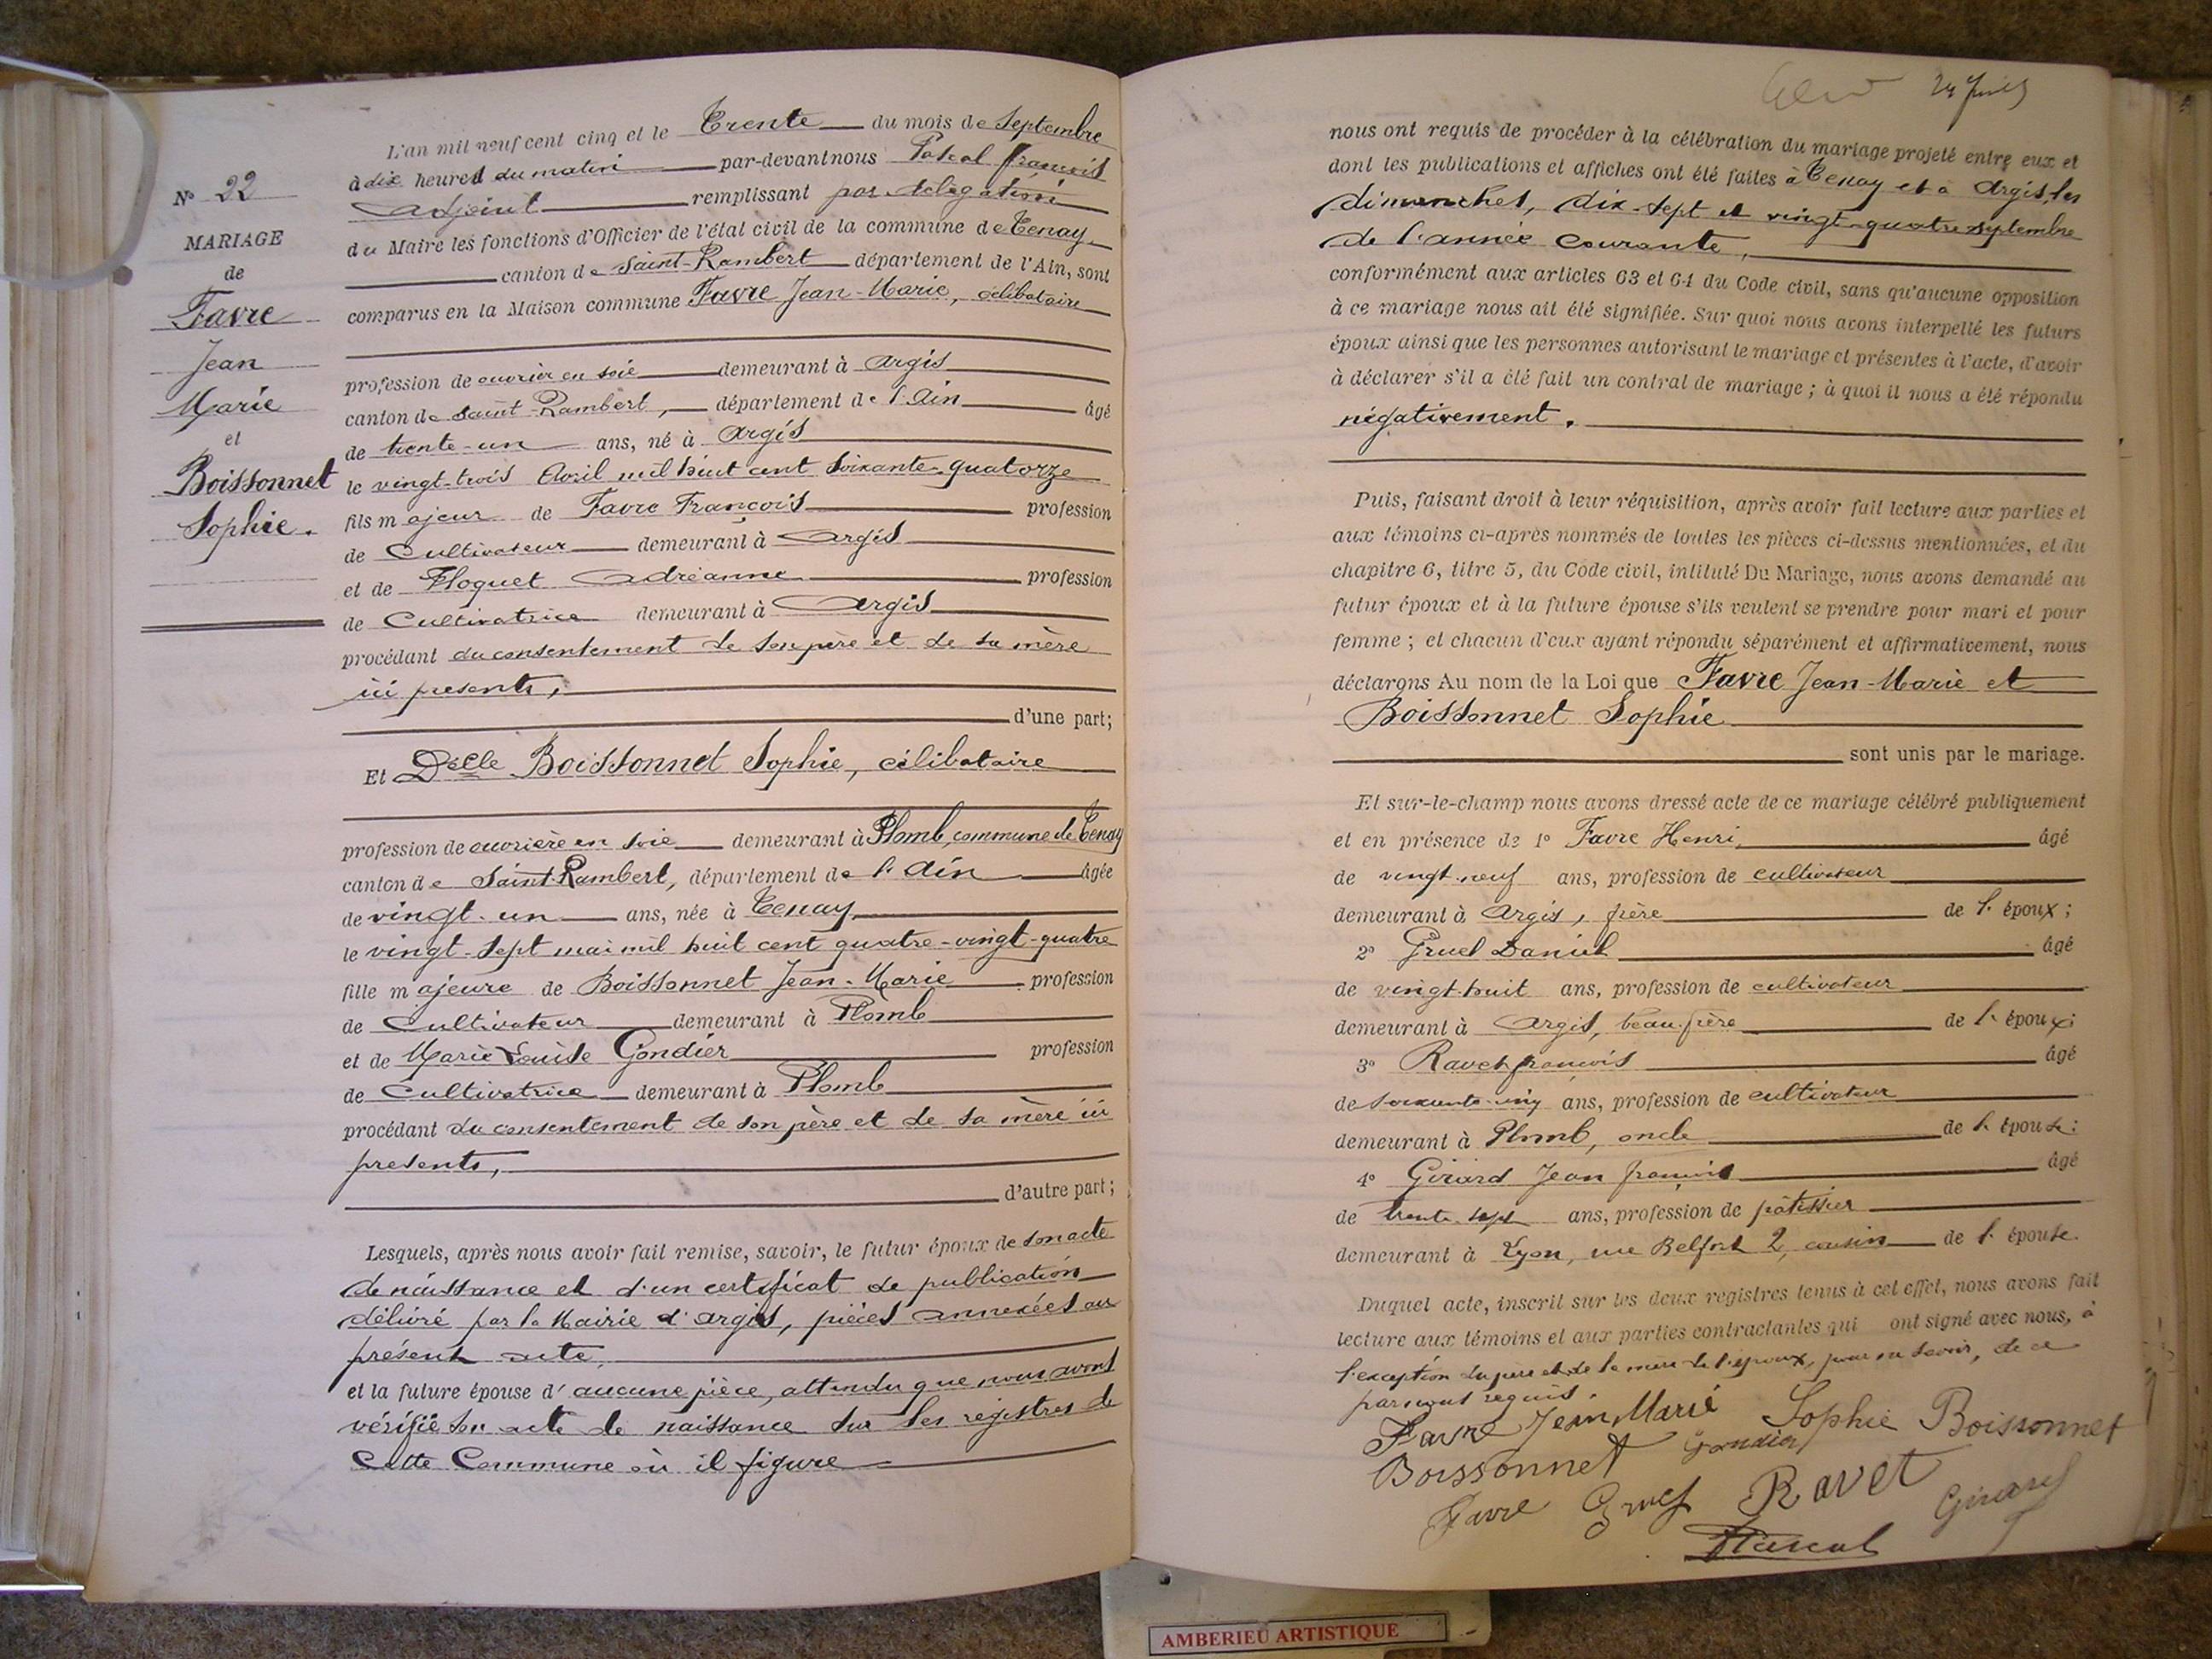 N° 22
MARIAGE
de
Favre
Jean
Marie
et
Boissonnet
Sophie.
L'an mil neuf cent cinq et le Trente du mois de Septembre
à dix heures du matin par-devant nous Pascal françois
Adjoint remplissant par délégation
du Maire les fonctions d'Officier de l'état civil de la commune de Tenay
canton de Saint-Rambert département de l'Ain, sont
comparus en la Maison commune Favre Jean-Marie, célibataire
profession de ouvrier en soie demeurant à Argis
canton de Saint-Rambert, département de l'Ain âgé
de trente-un ans, né à Argis
le vingt-trois Avril mil huit cent soixante-quatorze
fils majeur de Favre François profession
de Cultivateur demeurant à Argis
et de Floquet Adréanne profession
de Cultivatrice demeurant à Argis
procédant du consentement de son père et de sa mère
ici presents,
d'une part;
Et Delle Boissonnet Sophie, célibataire
profession de ouvrière en soie demeurant à Plomb, commune de Tenay
canton de Saint-Rambert, département de l'Ain âgée
de vingt-un ans, née à Tenay
le vingt-sept mai mil huit cent quatre-vingt-quatre
fille majeure de Boissonnet Jean-Marie profession
de Cultivateur demeurant à Plomb
et de Marie Louise Gondier profession
de Cultivatrice demeurant à Plomb
procédant du consentement de son père et de sa mère ici
presents,
d'autre part;
Lesquels, après nous avoir fait remise, savoir, le futur époux de son acte
de naissance et d'un certificat de publication
délivré par la Mairie d'Argis, pièces annexées au
présent acte,
et la future épouse d'aucune pièce, attendu que nous avons
vérifié son acte de naissance sur les registres de
Cette Commune où il figure
nous ont requis de procéder à la célébration du mariage projeté entre eux et
dont les publications et affiches ont été faites à Tenay et à Argis, les
dimanches, dix-sept et vingt-quatre septembre
de l'année courante,
conformément aux articles 63 et 64 du Code civil, sans qu'aucune opposition
à ce mariage nous ait été signifiée. Sur quoi nous avons interpellé les futurs
époux ainsi que les personnes autorisant le mariage et présentes à l'acte, d'avoir
à déclarer s'il a été fait un contrat de mariage ; à quoi il nous a été répondu
négativement.
Puis, faisant droit à leur réquisition, après avoir fait lecture aux parties et
aux témoins ci-après nommés de toutes les pièces ci-dessus mentionnées, et du
chapitre 6, titre 5, du Code civil, intitulé Du Mariage, nous avons demandé au
futur époux et à la future épouse s'ils veulent se prendre pour mari et pour
femme ; et chacun d'eux ayant répondu séparément et affirmativement, nous
déclarons Au nom de la Loi que Favre Jean-Marie et
Boissonnet Sophie
sont unis par le mariage.
Et sur-le-champ nous avons dressé acte de ce mariage célébré publiquement
et en présence de 1° Favre Henri, âgé
de vingt-neuf ans, profession de cultivateur
demeurant à Argis, frère de l'époux ;
2° Gruel Daniel âgé
de vingt-huit ans, profession de cultivateur
demeurant à Argis, beau-frère de l'époux;
3° Ravet françois âgé
de soixante-cinq ans, profession de cultivateur
demeurant à Plomb, oncle de l'épouse;
4° Girard Jean françois âgé
de trente-sept ans, profession de pâtissier
demeurant à Lyon, rue Belfort 2, cousin de l'épouse.
Duquel acte, inscrit sur les deux registres tenus à cet effet, nous avons fait
lecture aux témoins et aux parties contractantes qui ont signé avec nous, à
l'exception du père et de la mère de l'époux, pour ne savoir, de ce
par nous requis.
Favre Jean Marie Sophie Boissonnet
Boissonnet Gondier
Favre Gruel Ravet Girard
Pascal
AMBERIEU ARTISTIQUE